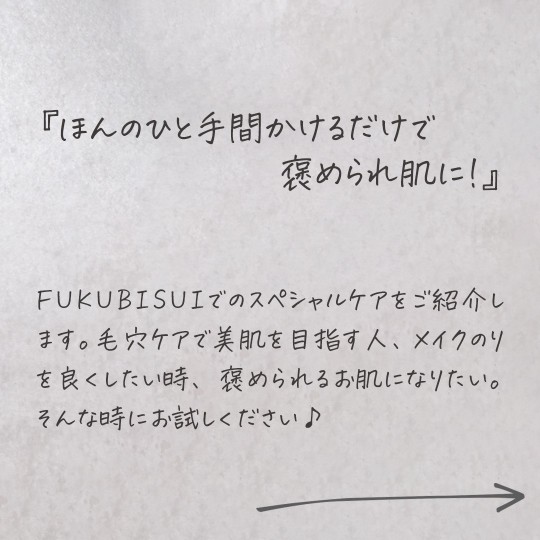 『ほんのひと手間かけるだけで
褒められ肌に!』
FUKUBISUIでのスペシャルケアをご紹介し
ます。毛穴ケアで美肌を目指す人、メイクのり
を良くしたい時、褒められるお肌になりたい。
そんな時にお試しください♪